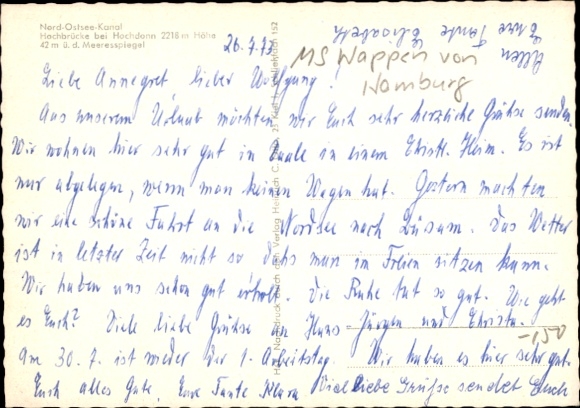 Nord-Ostsee-Kanal
Hochbrücke bei Hochdonn 2218 m Höhe
42 m ü. d. Meeresspiegel
26.7.73
MS Wappen von
Hamburg
Liebe Annegret, lieber Wolfgang!
Aus unserem Urlaub möchten wir Euch sehr herzliche Grüße senden.
Wir wohnen hier sehr gut in in einem Christl. Heim. Es ist
nur abgelegen, wenn man keinen Wagen hat. Gestern machten
wir eine schöne Fahrt an die Nordsee nach Büsum. Das Wetter
ist in letzter Zeit nicht so daß man im Freien sitzen kann.
Wir haben uns schon gut erholt. Die Ruhe tut so gut. Wie geht
es Euch? Viele liebe Grüße an Hans Jürgen und Christa.
-1,50
Am 30.7. ist wieder der 1. Arbeitstag. Wir haben es hier sehr gut.
Euch alles Gute. Eure Tante Klara Viele liebe Grüße sendet Euch
Allen
Eure Tante Elisabeth